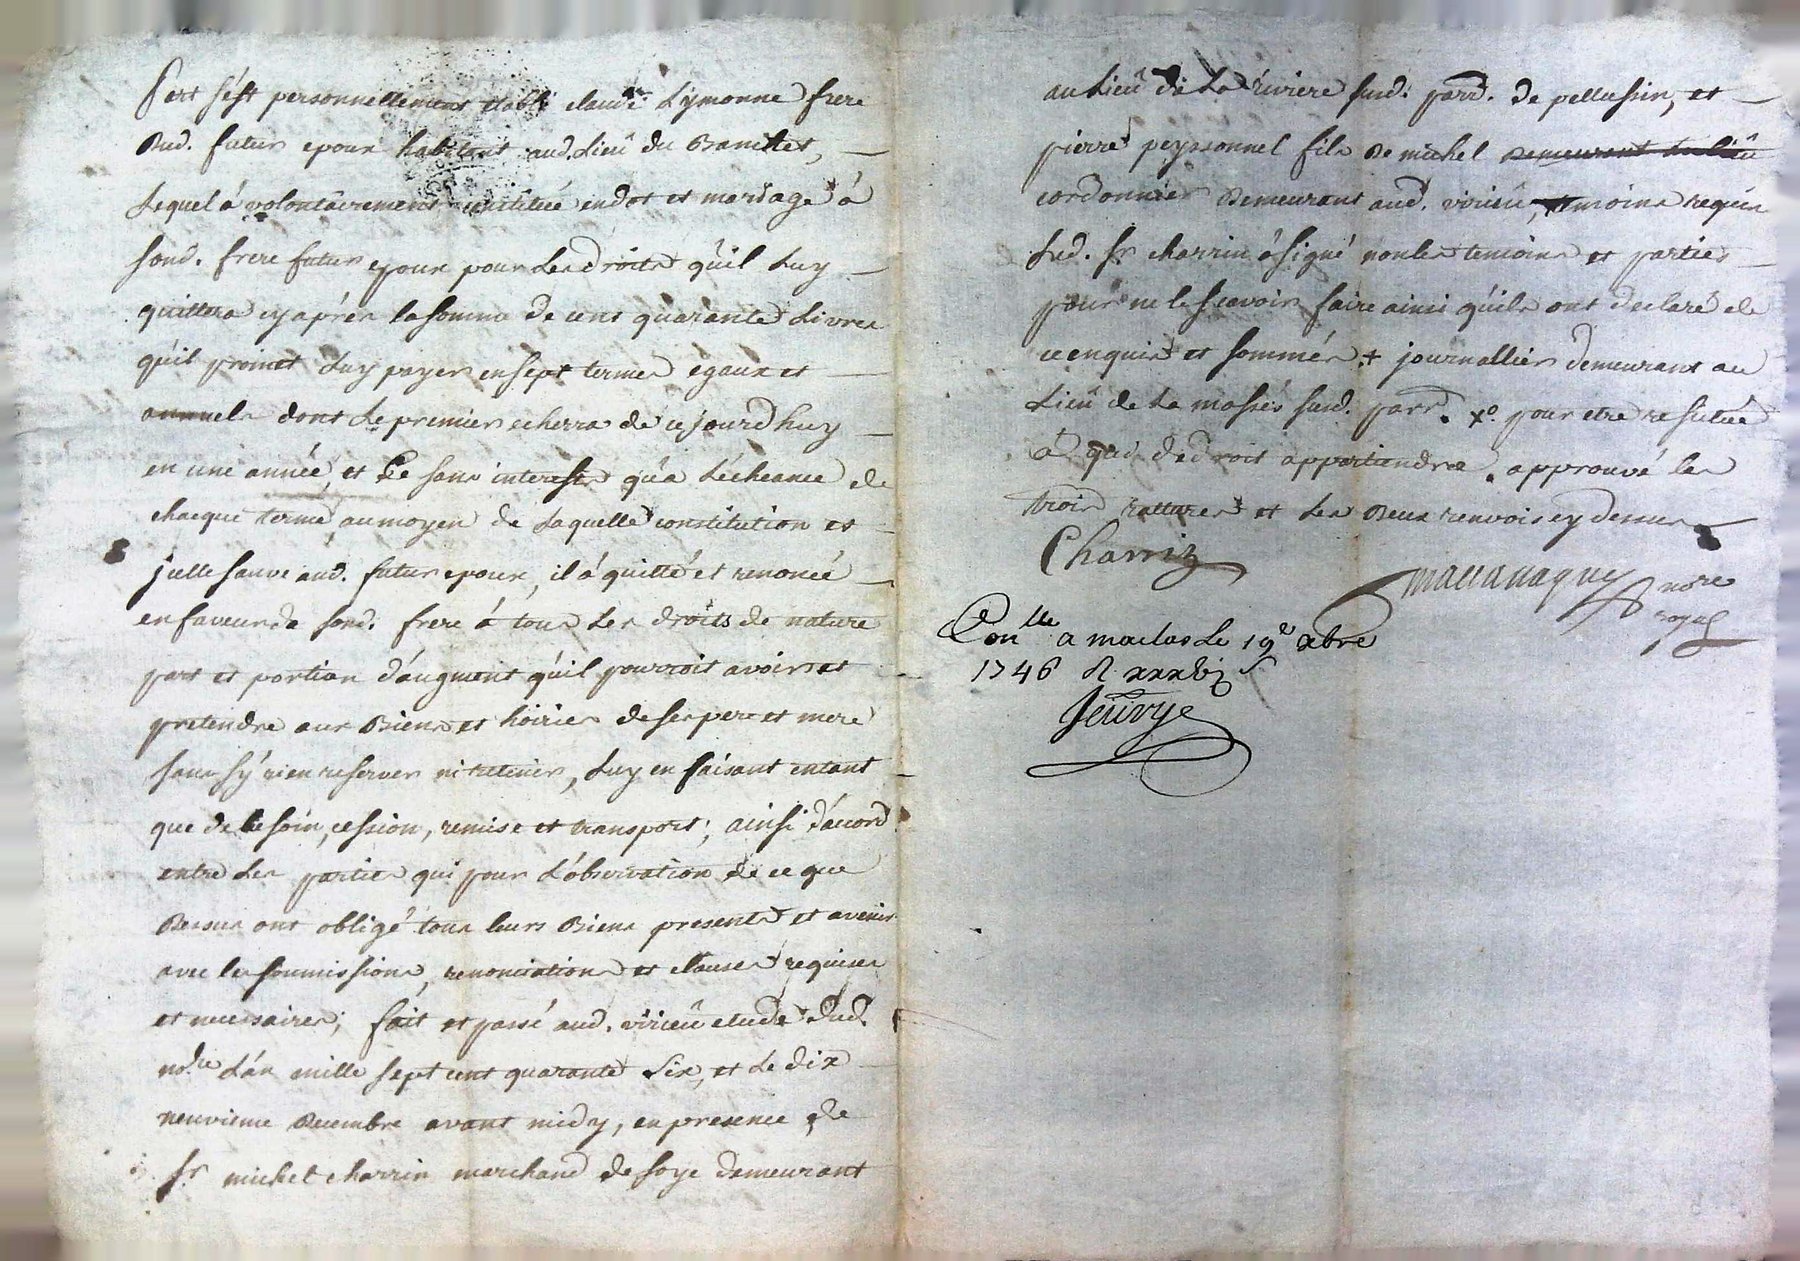 part s'est personnellement etably claude Lymonne frere
Dud. futur epoux habitant aud. Lieu du Banchet,
Lequel á volontairement constitué en dot et mariage á
sond. frere futur epoux pour Les droits qu'il Luy
quittera cy aprés la somme de cent quarante Livres
qu'il promet Luy payer en sept termes egaux et
annuels dont Le premier echerra de ce jourd'huy
en une année, et Ce sans interests qu'a L'écheance de
chaque terme, au moyen de Laquelle constitution et
jcelle sauve aud. futur epoux, il á quitté et renoncé
en faveur de sond. frere á tous Les droits de nature
part et portion d'augment qu'il pourroit avoir et
pretendre aux Biens et hoiries de ses pere et mere
sans s'y rien reserver ni retenir, Luy en faisant entant
que de besoin, cession, remise et transport; ainsi d'accord
entre Les parties qui pour L'observation de ce que
Dessus ont obligé tous leurs Biens presents et avenir
avec les soumissions, renonciations et clauses requises
et necessaires; fait et passé aud. virieu etude Dud.
no.re L'an mille sept cent quarante Six, et Le dix
neuvieme Decembre avant midy, en presence de
sr michel charrin marchand de soye demeurant
au Lieu de La riviere susd. parr. de pellussin, et
pierre peyssonnel fils de michel demeurant au lieu
cordonnier Demeurant aud. virieu, temoins requis
Led. sr charrin á signé non les temoins et parties
pour ne le sçavoir faire ainsi qu'ils ont declaré de
ce enquis et sommés + journallier demeurant au
Lieu de La susd. parr. x.o pour etre restituée
á qui de droit appartiendra. approuvé les
trois rattures et Les Deux renvois cy dessus
Charrin
no.re
royal
Con.lle a maclas Le 19e xbre
1746 R xxxvj s